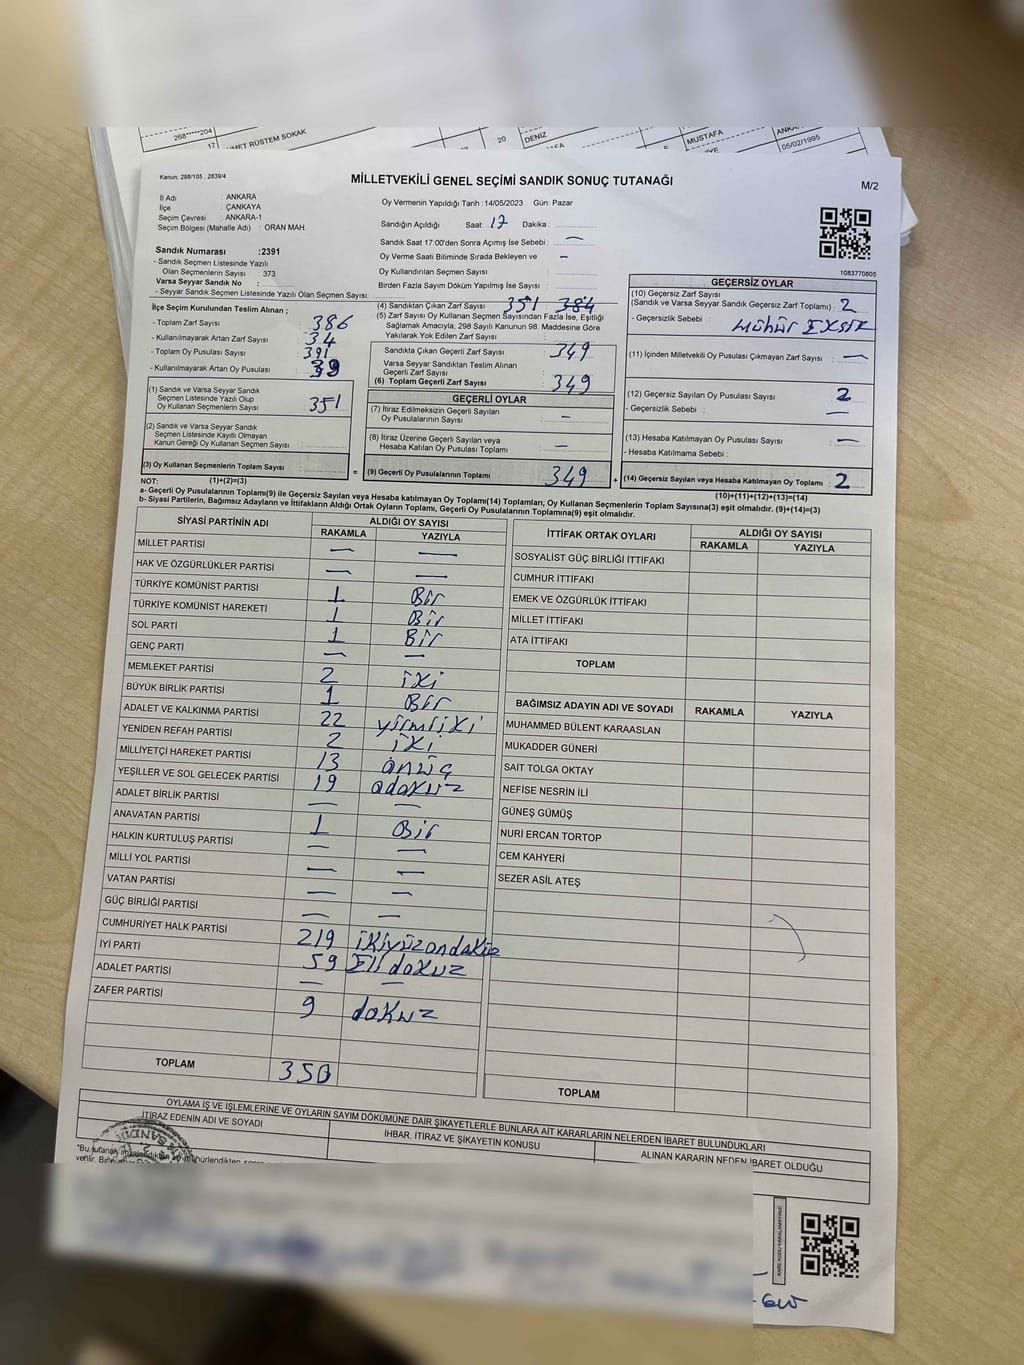 268*****204
17
MET RÜSTEM SOKAK
20
DENİZ
MUSTAFA
05/02/1995
Kanun: 298/105 , 2839/4
MİLLETVEKİLİ GENEL SEÇİMİ SANDIK SONUÇ TUTANAĞI
M/2
İl Adı : ANKARA
İlçe : ÇANKAYA
Seçim Çevresi : ANKARA-1
Seçim Bölgesi (Mahalle Adı) : ORAN MAH.
Sandık Numarası :2391
- Sandık Seçmen Listesinde Yazılı
Olan Seçmenlerin Sayısı : 373
Varsa Seyyar Sandık No :
- Seyyar Sandık Seçmen Listesinde Yazılı Olan Seçmen Sayısı:
Oy Vermenin Yapıldığı Tarih :14/05/2023 Gün: Pazar
Sandığın Açıldığı Saat: 17 Dakika :
Sandık Saat 17:00'den Sonra Açımış İse Sebebi : —
Oy Verme Saati Bitiminde Sırada Bekleyen ve –
Oy Kullandırılan Seçmen Sayısı :
Birden Fazla Sayım Döküm Yapılmış İse Sayısı :
1083770805
İlçe Seçim Kurulundan Teslim Alınan ;
- Toplam Zarf Sayısı : 386
- Kullanılmayarak Artan Zarf Sayısı : 34
- Toplam Oy Pusulası Sayısı : 391
- Kullanılmayarak Artan Oy Pusulası : 39
(1) Sandık ve Varsa Seyyar Sandık
Seçmen Listesinde Yazılı Olup
Oy Kullanan Seçmenlerin Sayısı : 351
(2) Sandık ve Varsa Seyyar Sandık
Seçmen Listesinde Kayıtlı Olmayan
Kanun Gereği Oy Kullanan Seçmen Sayısı :
(3) Oy Kullanan Seçmenlerin Toplam Sayısı :
(4) Sandıktan Çıkan Zarf Sayısı : 351 384
(5) Zarf Sayısı Oy Kullanan Seçmen Sayısından Fazla İse, Eşitliği
Sağlamak Amacıyla, 298 Sayılı Kanunun 98. Maddesine Göre
Yakılarak Yok Edilen Zarf Sayısı :
Sandıkta Çıkan Geçerli Zarf Sayısı : 349
Varsa Seyyar Sandıktan Teslim Alınan
Geçerli Zarf Sayısı :
(6) Toplam Geçerli Zarf Sayısı : 349
GEÇERLİ OYLAR
(7) İtiraz Edilmeksizin Geçerli Sayılan
Oy Pusulalarının Sayısı : –
(8) İtiraz Üzerine Geçerli Sayılan veya
Hesaba Katılan Oy Pusulası Toplamı : –
= (9) Geçerli Oy Pusulalarının Toplamı : 349 +
GEÇERSİZ OYLAR
(10) Geçersiz Zarf Sayısı
(Sandık ve Varsa Seyyar Sandık Geçersiz Zarf Toplamı) : 2
- Geçersizlik Sebebi : Mühür EKSİK
(11) İçinden Milletvekili Oy Pusulası Çıkmayan Zarf Sayısı : —
(12) Geçersiz Sayılan Oy Pusulası Sayısı : 2
- Geçersizlik Sebebi : —
(13) Hesaba Katılmayan Oy Pusulası Sayısı : —
- Hesaba Katılmama Sebebi :
(14) Geçersiz Sayılan veya Hesaba Katılmayan Oy Toplamı : 2
NOT: (1)+(2)=(3)
(10)+(11)+(12)+(13)=(14)
a- Geçerli Oy Pusulalarının Toplamı(9) ile Geçersiz Sayılan veya Hesaba katılmayan Oy Toplamı(14) Toplamları, Oy Kullanan Seçmenlerin Toplam Sayısına(3) eşit olmalıdır. (9)+(14)=(3)
b- Siyasi Partilerin, Bağımsız Adayların ve İttifakların Aldığı Ortak Oyların Toplamı, Geçerli Oy Pusulalarının Toplamına(9) eşit olmalıdır.
SİYASİ PARTİNİN ADI ALDIĞI OY SAYISI
RAKAMLA YAZIYLA
MİLLET PARTİSİ — —
HAK VE ÖZGÜRLÜKLER PARTİSİ — —
TÜRKİYE KOMÜNİST PARTİSİ 1 Bir
TÜRKİYE KOMÜNİST HAREKETİ 1 Bir
SOL PARTİ 1 Bir
GENÇ PARTİ — —
MEMLEKET PARTİSİ 2 iki
BÜYÜK BİRLİK PARTİSİ 1 Bir
ADALET VE KALKINMA PARTİSİ 22 yirmiiki
YENİDEN REFAH PARTİSİ 2 iki
MİLLİYETÇİ HAREKET PARTİSİ 13 onüç
YEŞİLLER VE SOL GELECEK PARTİSİ 19 odokuz
ADALET BİRLİK PARTİSİ — —
ANAVATAN PARTİSİ 1 Bir
HALKIN KURTULUŞ PARTİSİ — —
MİLLİ YOL PARTİSİ — —
VATAN PARTİSİ — —
GÜÇ BİRLİĞİ PARTİSİ — —
CUMHURİYET HALK PARTİSİ 219 ikiyüzondokuz
İYİ PARTİ 59 Ellidokuz
ADALET PARTİSİ — —
ZAFER PARTİSİ 9 dokuz
TOPLAM 350
İTTİFAK ORTAK OYLARI ALDIĞI OY SAYISI
RAKAMLA YAZIYLA
SOSYALİST GÜÇ BİRLİĞİ İTTİFAKI
CUMHUR İTTİFAKI
EMEK VE ÖZGÜRLÜK İTTİFAKI
MİLLET İTTİFAKI
ATA İTTİFAKI
TOPLAM
BAĞIMSIZ ADAYIN ADI VE SOYADI RAKAMLA YAZIYLA
MUHAMMED BÜLENT KARAASLAN
MUKADDER GÜNERİ
SAİT TOLGA OKTAY
NEFİSE NESRİN İLİ
GÜNEŞ GÜMÜŞ
NURİ ERCAN TORTOP
CEM KAHYERİ
SEZER ASİL ATEŞ
TOPLAM
OYLAMA İŞ VE İŞLEMLERİNE VE OYLARIN SAYIM DÖKÜMÜNE DAİR ŞİKAYETLERLE BUNLARA AİT KARARLARIN NELERDEN İBARET BULUNDUKLARI
İTİRAZ EDENİN ADI VE SOYADI
İHBAR, İTİRAZ VE ŞİKAYETİN KONUSU
ALINAN KARARIN NEDEN İBARET OLDUĞU